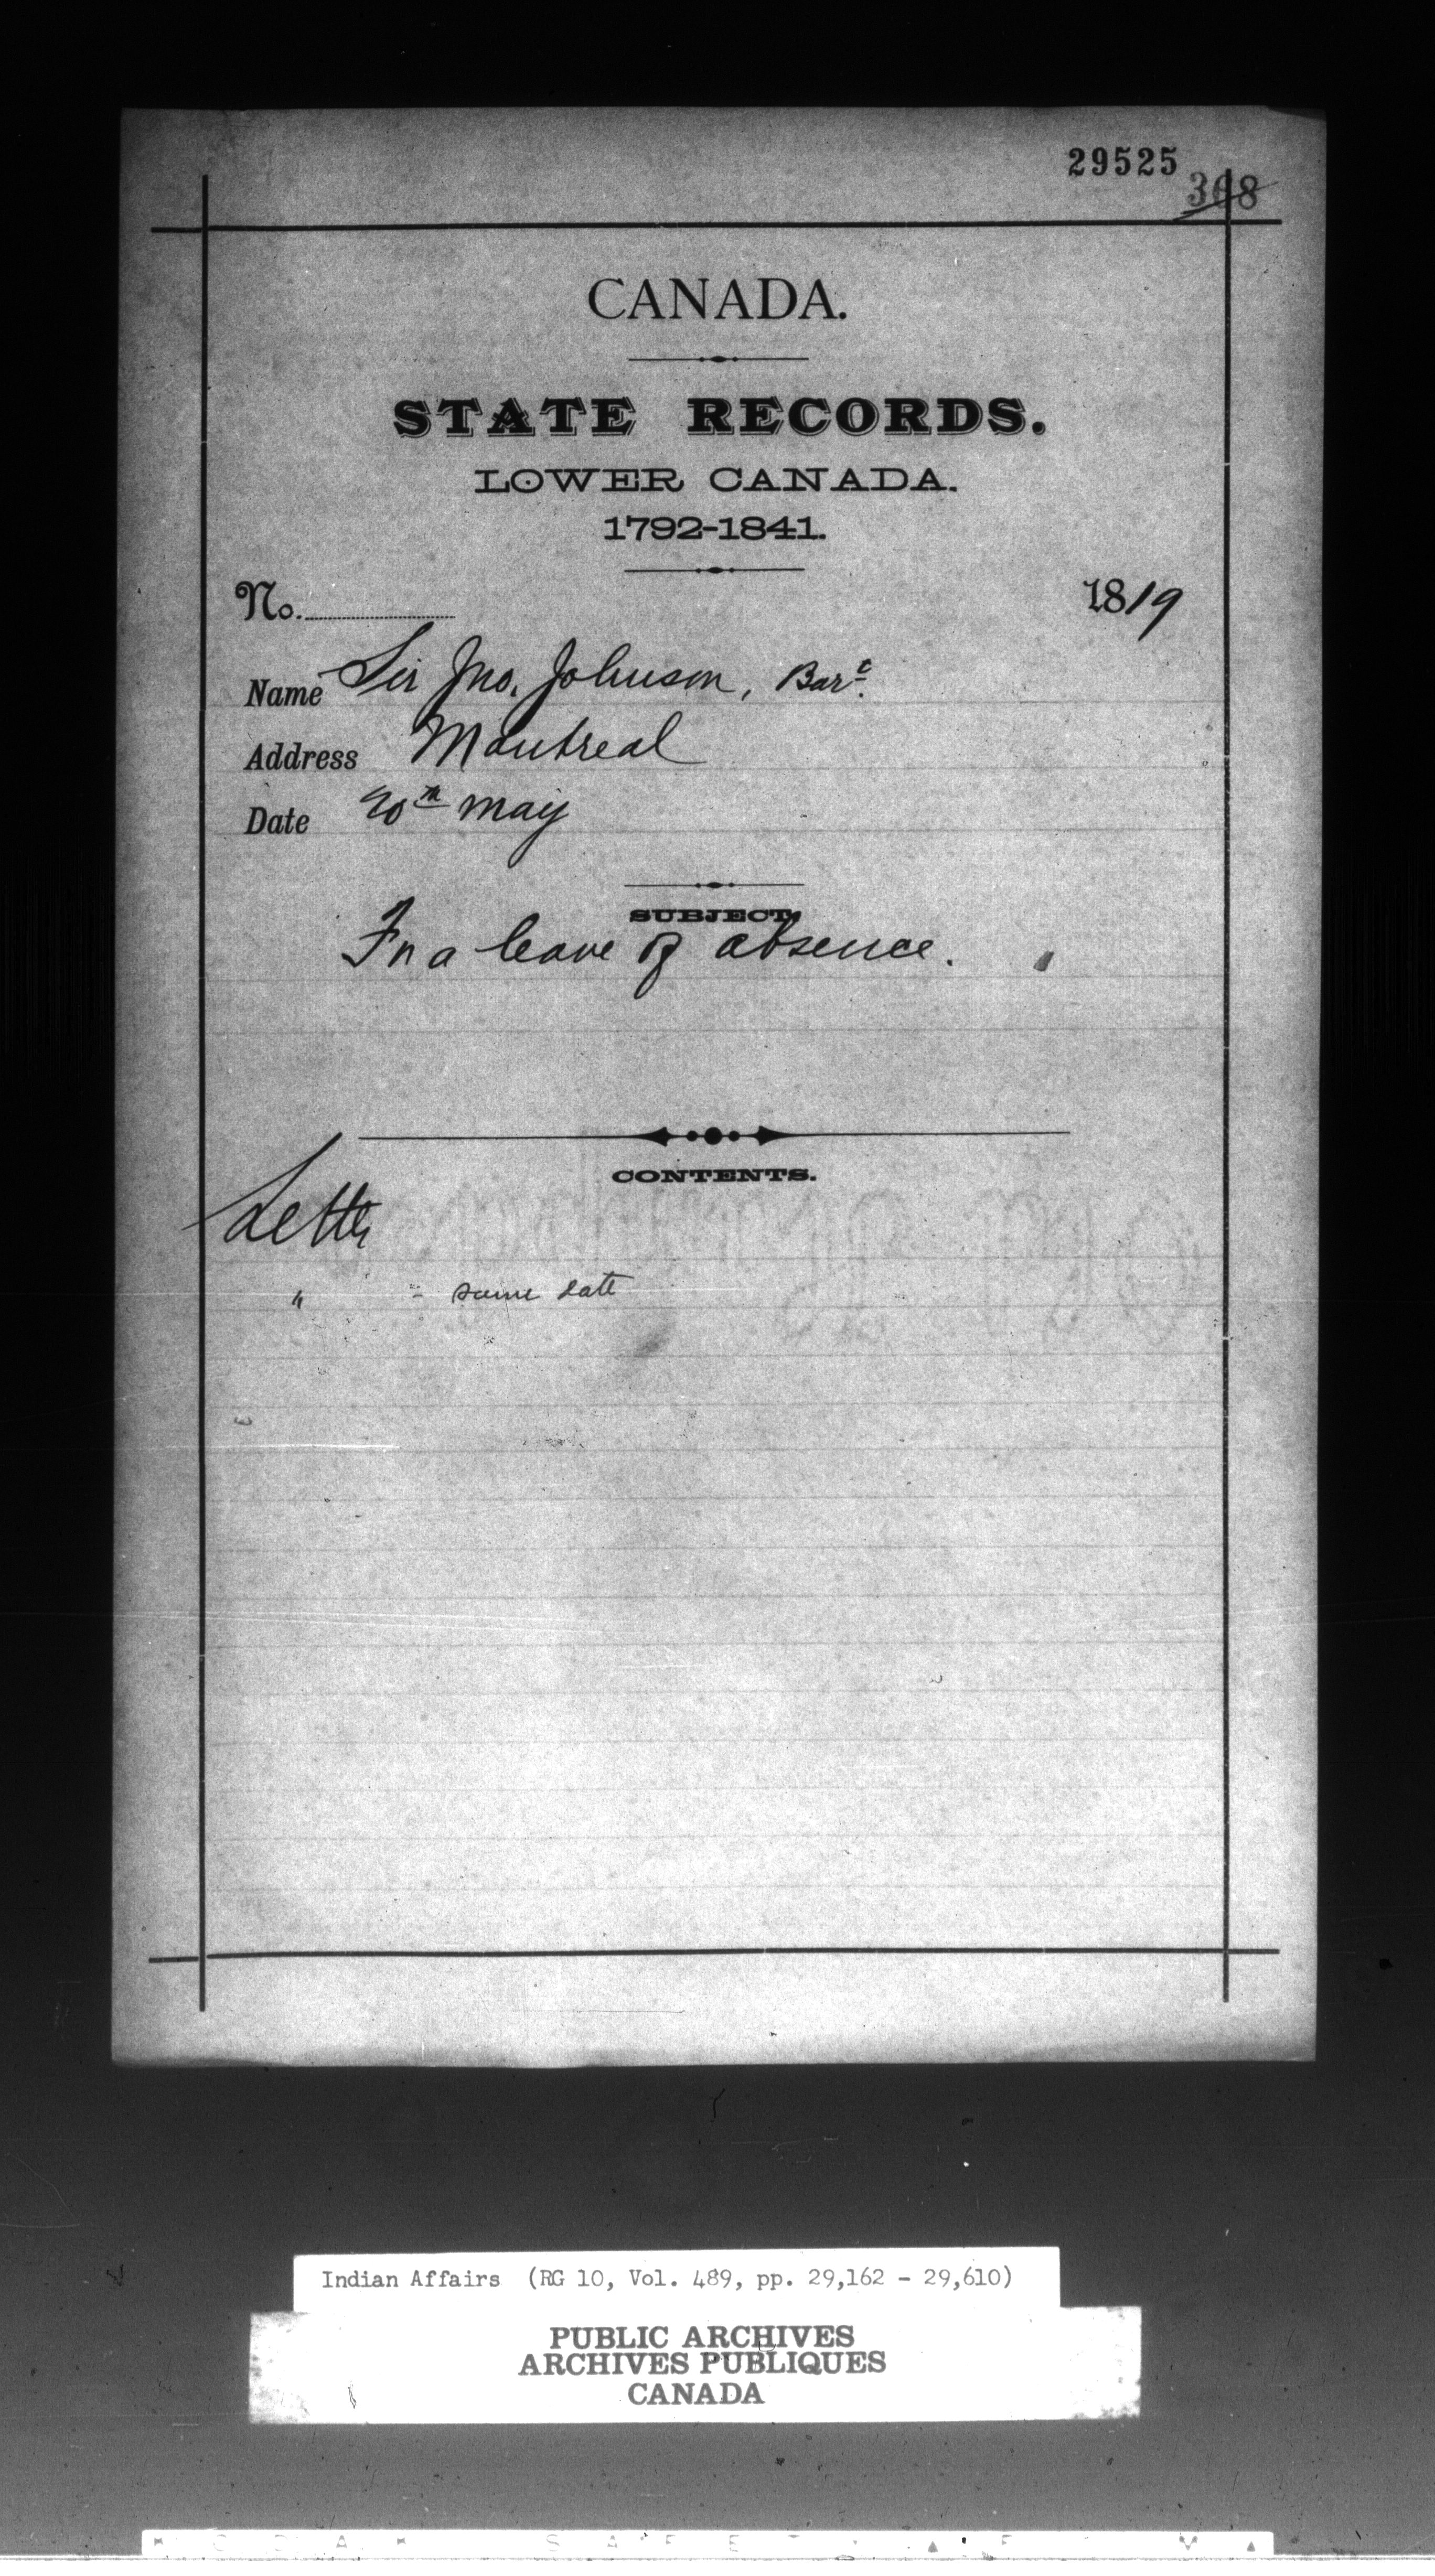 29525
368
CANADA.
STATE RECORDS.
LOWER CANADA.
1792-1841.
No. 1819
Name Sir Jno. Johnson, Bart.
Address Montreal
Date 20th May
SUBJECT.
For a leave of absence.
CONTENTS.
Letter
" - same date
Indian Affairs (RG 10, Vol. 489, pp. 29,162 - 29,610)
PUBLIC ARCHIVES
ARCHIVES PUBLIQUES
CANADA